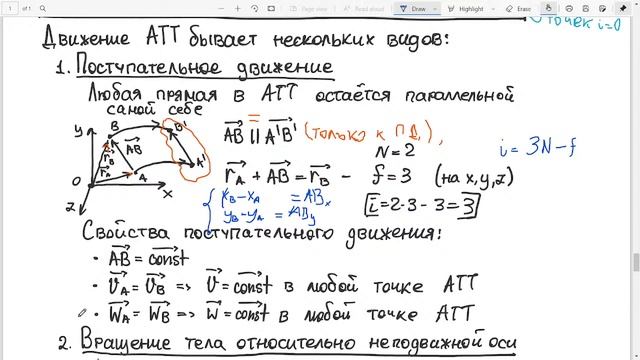 1 of 1
Read aloud
Draw
Highlight
Erase
точек i=0
Движение АТТ бывает нескольких видов:
1. Поступательное движение
Любая прямая в АТТ остаётся параллельной
самой себе
y B B' AB r_B r_A A A' O x z
AB = || A'B' (только к П.Д.)
N=2
i = 3N-f
r_A + AB = r_B - f=3 (на x,y,z)
x_B-x_A = AB_x
y_B-y_A = AB_y
i=2·3-3=3
Свойства поступательного движения:
· AB = const
· v_A = v_B => v = const в любой точке АТТ
· w_A = w_B => w = const в любой точке АТТ
2. Вращение тела относительно неподвижной оси